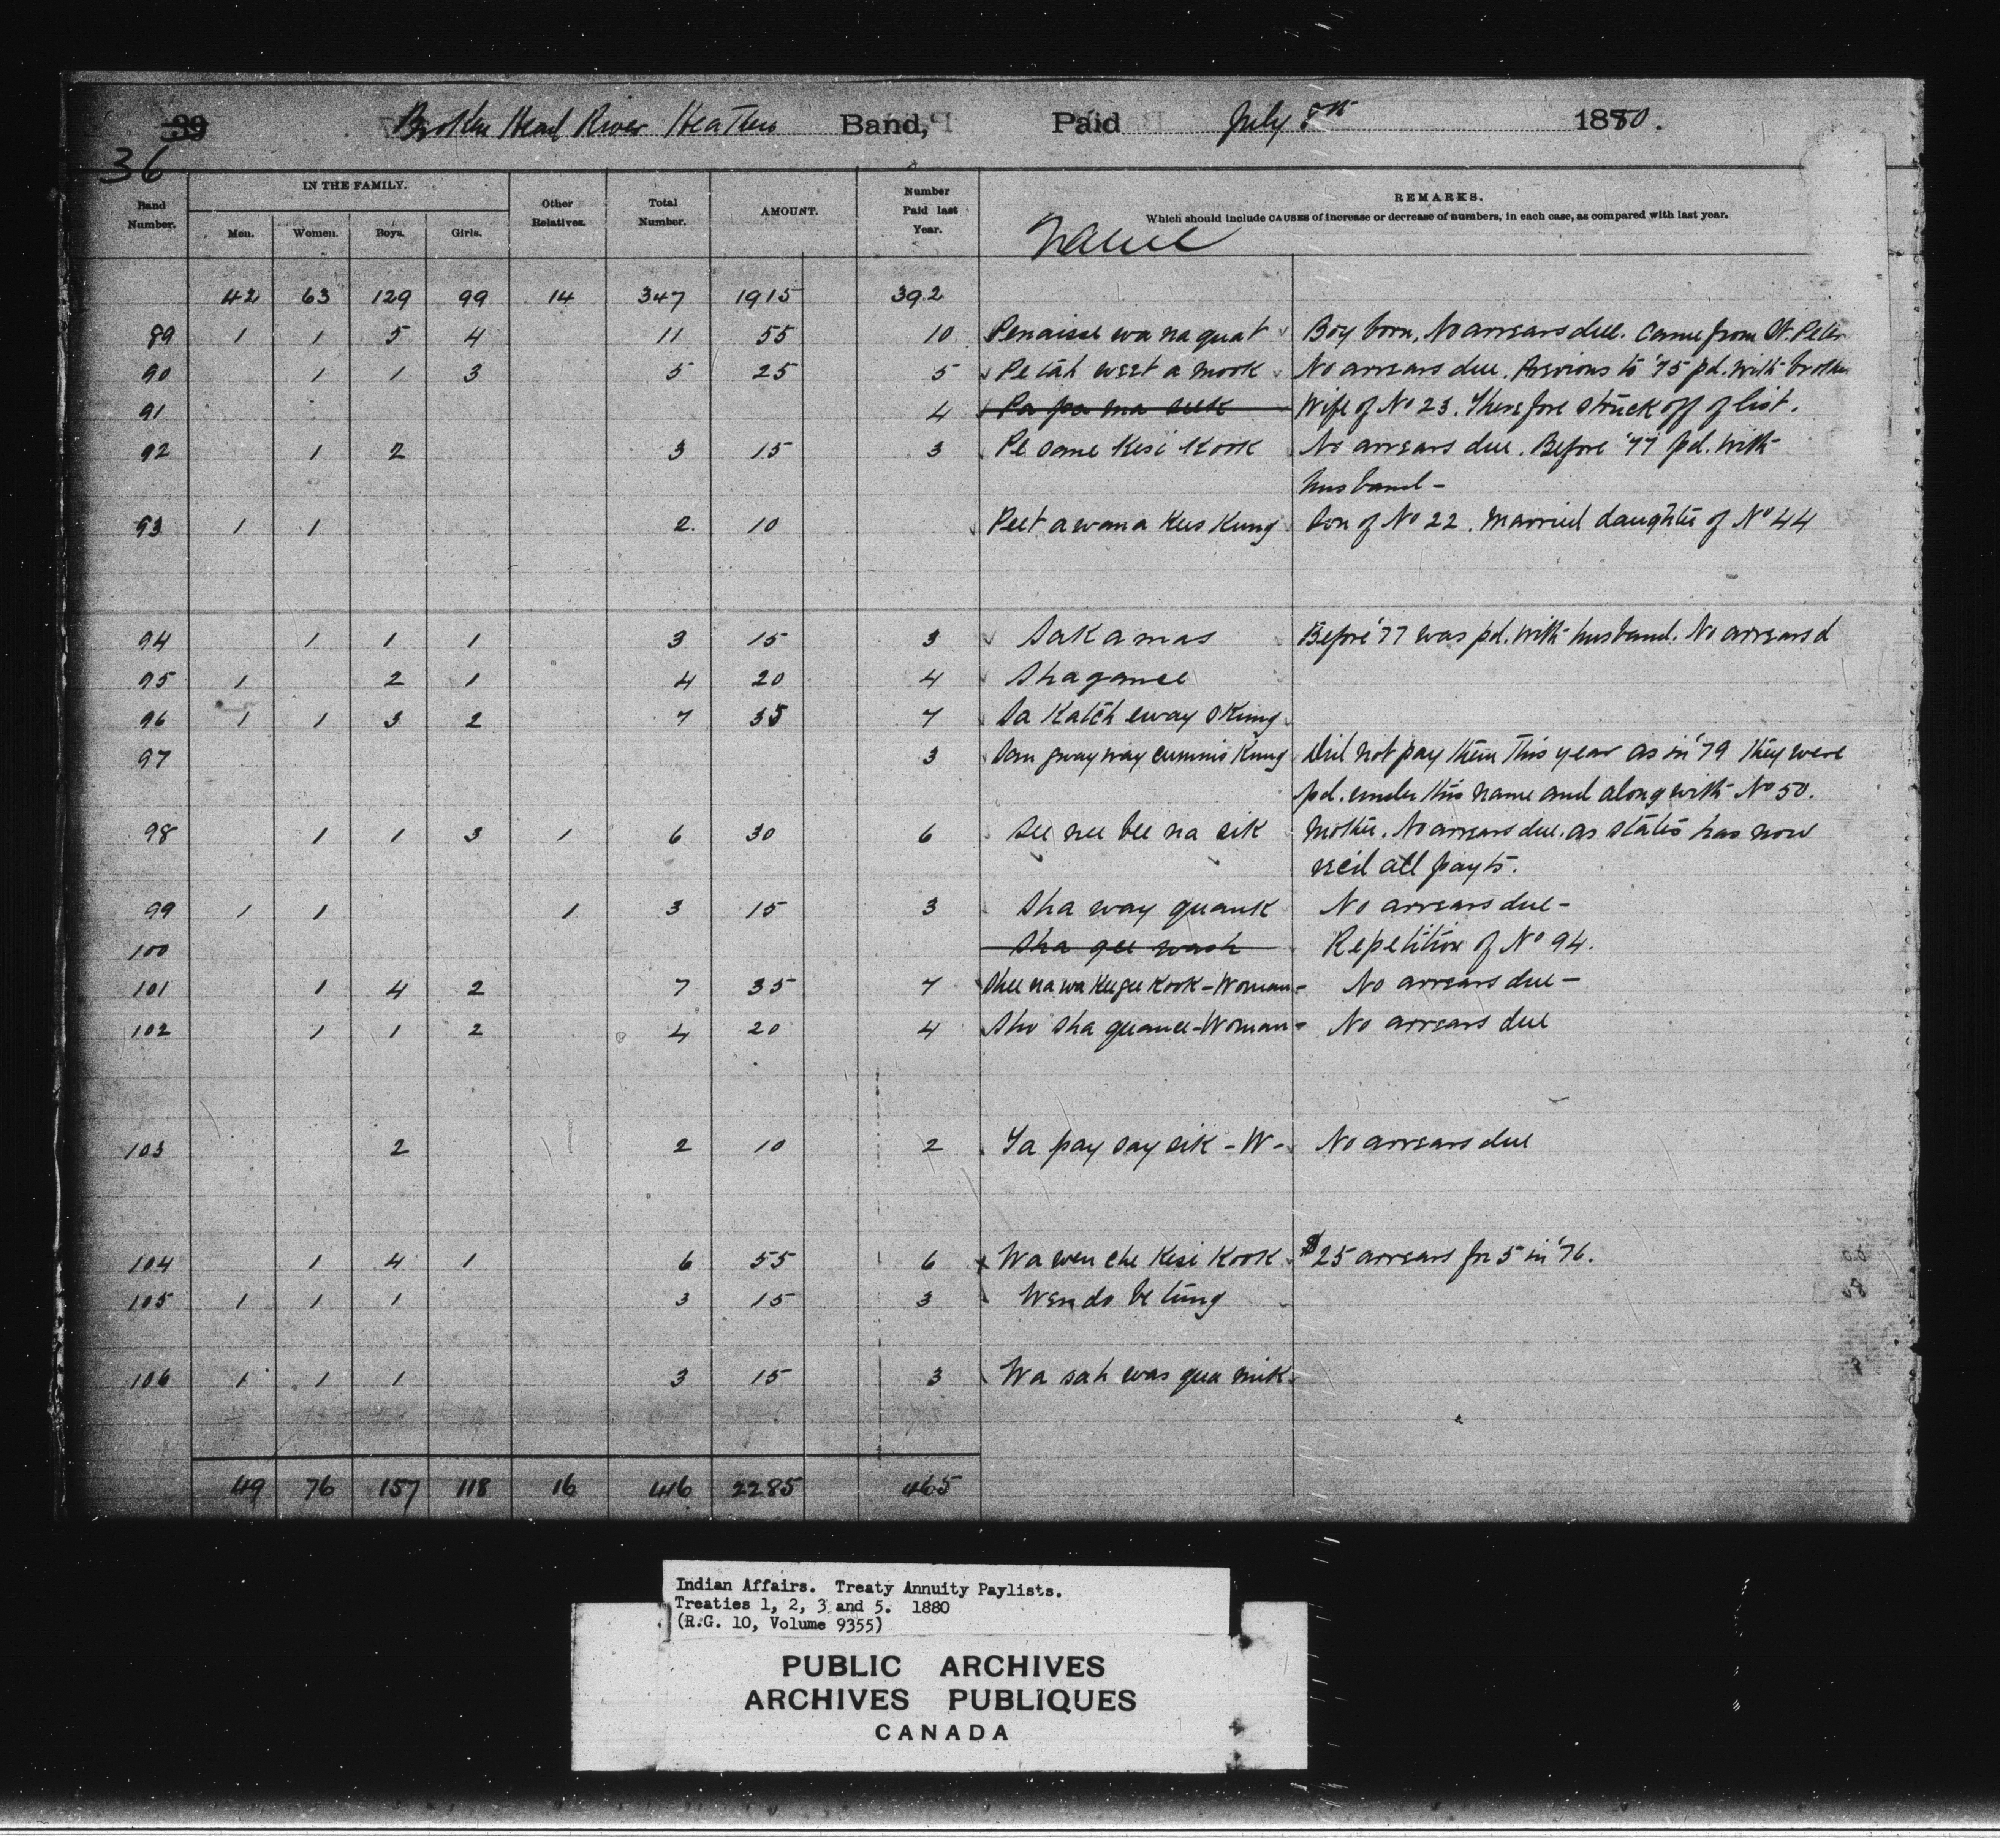 39 Broken Head River Heathen Band, Paid July 8th 1880.
36
Band Number. IN THE FAMILY. Men. Women. Boys. Girls. Other Relatives. Total Number. AMOUNT. Number Paid last Year. REMARKS.
Which should include CAUSES of increase or decrease of numbers, in each case, as compared with last year.
Name
42 63 129 99 14 347 1915 392
89 1 1 5 4 11 55 10 Penaisse wa na quat Boy born, No arrears due. Came from St. Peter
90 1 1 3 5 25 5 Pe tah weet a mook No arrears due. Previous to '75 pd. with brother
91 4 Pa pa ma seek Wife of No 23. Therefore struck off of list.
92 1 2 3 15 3 Pe same Kesi Kook No arrears due. Before '77 pd. with
husband -
93 1 1 2 10 Peet a wana Kees Kung Son of No 22. Married daughter of No 44
94 1 1 1 3 15 3 Sakamas Before '77 was pd. with husband. No arrears d
95 1 2 1 4 20 4 Shagance
96 1 1 3 2 7 35 7 Sa Katch eway s Kung
97 3 Sam gway way cummis Kung Did not pay them this year as in '79 they were
pd. under this name and along with No 50.
98 1 1 3 1 6 30 6 See nee bee na sik Mother. No arrears due. as states has now
rec'd all payts.
99 1 1 1 3 15 3 Sha way quank No arrears due -
100 Sha gee wash Repetition of No 94.
101 1 4 2 7 35 7 Shee na wa Keegee Kook - Woman - No arrears due -
102 1 1 2 4 20 4 Sho sha quance - Woman - No arrears due
103 2 2 10 2 Ya pay say sik - W - No arrears due
104 1 4 1 6 55 6 Wa wen che Kesi Kook $25 arrears for 5 in '76.
105 1 1 1 3 15 3 Wendo be tung
106 1 1 1 3 15 3 Wa sah was qua mik
49 76 157 118 16 416 2285 465
Indian Affairs. Treaty Annuity Paylists.
Treaties 1, 2, 3 and 5. 1880
(R.G. 10, Volume 9355)
PUBLIC ARCHIVES
ARCHIVES PUBLIQUES
CANADA